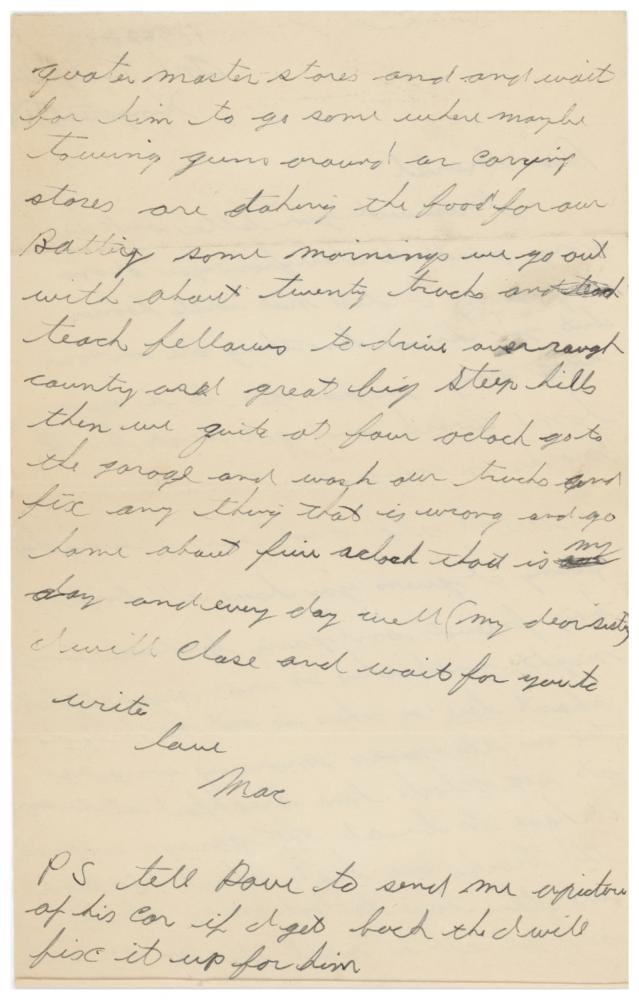 quater master stores and and wait
for him to go some where maybe
towing guns around or carrying
stores are takeing the food for our
Battry some mornings we go out
with about twenty trucks and teach
teach fellows to drive over rough
county and great big steep hills
then we quite at four oclock go to
the garage and wash our trucks and
fix any thing that is wrong and go
home about five oclock that is my
day and every day well (my dear sister)
I will close and wait for you to
write
love
Mac
PS tell Dave to send me a picture
of his car if I get back the I will
fix it up for him